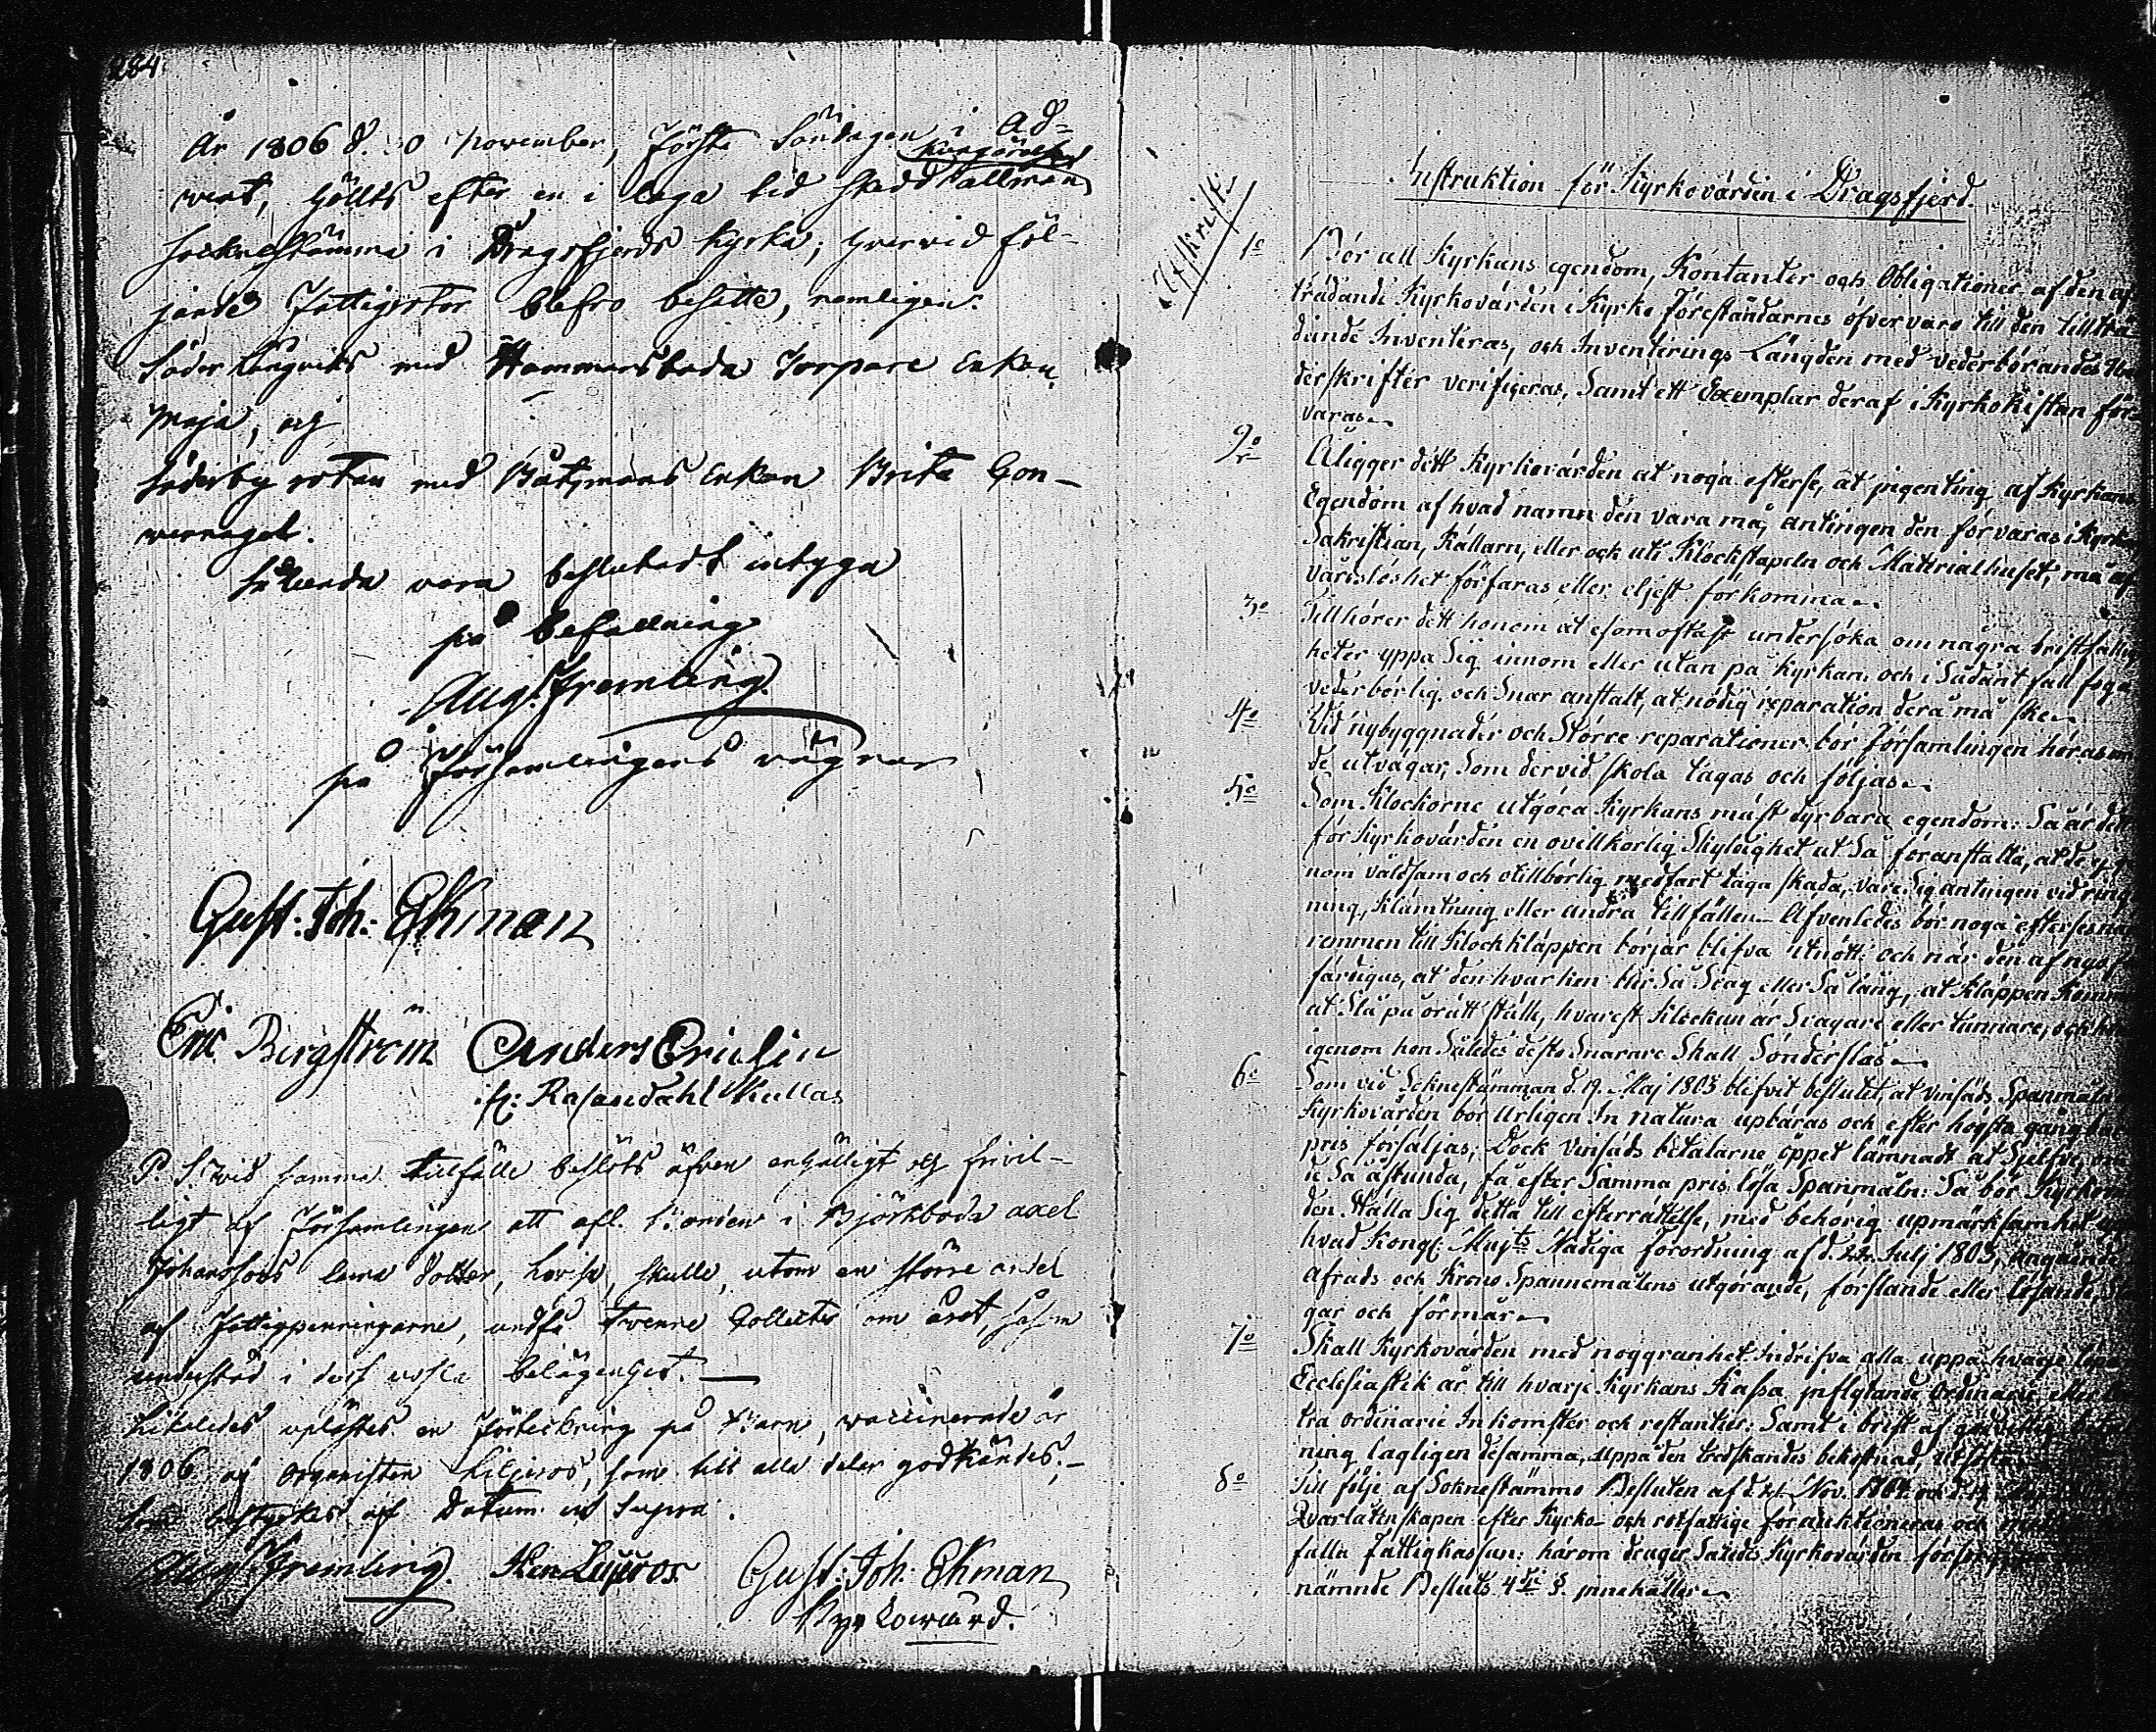 284
År 1806 d. 30 November, Förste Söndagen i Ad=
vent, hölts efter en i laga tid skedd Kungörelse allmän
Socknestämma i Dragsfjerds Kyrka; hvarvid föl-
jande Fattigrotor blefvo besatte, nemligen:
Söder Långviks med Hammarsboda Torpare Enkan
Maja, och
Söderby rotan med Båtsmans Enkan Brita
Sålunda vara beslutadt intyga
på befallning
Aug. Fremling.
på Församlingens vägnar
Gust: Joh: Ekman
Eric Bergström Anders Ericsin
Rosendahl Kullas
P. S. vid samma tillfälle beslöts äfven enhälligt och frivil-
ligt af Församlingen att afl. Bonden i Björkboda Axel
Johanssons dotter, Lovisa, skulle, utom en större andel
af Fattigpenningarne, undfå tvenne Collecter om året, såsom
understöd i dess usla belägenhet.
Likaledes uplästes en Förteckning på Barn, vaccinerade år
1806 af Organisten Liljeros, som till alla delar godkändes.
Som bestyrkes af Datum ut Supra.
Aug. Fremling. Liljeros Gust: Joh: Ekman
Kyrkowärd.
Afskrift.
Instruktion för Kyrkovärden i Dragsfjerd.
1o Bör all Kyrkans egendom, Kontanter och Obligationer af den af
trädande Kyrkovärden i Kyrko Föreståndarnes öfvervaro till den tillträ
dande Inventeras, och Inventerings Längden med vederbörandes Un
derskrifter verifieras, Samt ett Exemplar deraf i Kyrkokistan för
varas.
2o Åligger dett Kyrkovärden at noga efterse, at ingenting af Kyrkans
Egendom af hvad namn den vara må, antingen den förvaras i Kyrkan
Sakristian, Källarn, eller ock uti Klockstapeln och Matrialhuset, må af
vårdslöshet förfaras eller eljest förkomma.
3o Tillhörer dett honom at esomoftast undersöka om några bristfällig
heter yppa Sig innom eller utan på Kyrkan, och i Sådant fall foga
vederbörlig och Snar anstalt, at nödig reparation derå må ske.
4o Vid nybyggnader och Större reparationer bör Församlingen höras om
de utvägar, Som dervid skola tagas och följas.
5o Som Klockorne utgöra Kyrkans mäst dyrbara egendom: Så är dett
för Kyrkovärden en ovillkorlig Skyldighet at Så föranstalta, at de ej ge
nom våldsam och otillbörlig medfart taga skada, vare Sig antingen vid ring
ning, Klämtning eller andra tillfällen. Äfvenledes bör noga efterses när
remmen till Klockkläppen börjar blifva utnött: och när den af nyo för
färdigas, at den hvarken blir Så Svag eller Så lång, at Kläppen Kommer
at Slå på orätt ställe, hvarest Klockan är Svagare eller tunnare, och hvar
igenom hon Således desto Snarare Skall Sönderslås.
6o Som vid Soknestämman d. 19 Maj 1805 blifvit beslutet, at Vinsäds Spanmåln
Kyrkovärden bör årligen In natura upbäras och efter högsta gångbar
pris försäljas; Dock Vinsäds betalarne öppet lämnadt at Sjelfve, om
de Så åstunda, få efter Samma pris lösa Spanmåln: Så bör Kyrkovär
den Hålla Sig detta till efterrättelse, med behörig upmärksamhet uppå
hvad Kongl: Majts Nådiga förordning af d. 22 Julj 1803, angående
Afrads och Krono Spannemålens utgörande, förslande eller lösande,
gar och förmår.
7o Skall Kyrkovärden med noggranhet Indrifva alla uppå hvarje löpa
Ecclesiastik år till hvarje Kyrkans Kassa inflytande Ordinarie eller Ex
tra ordinarie Inkomster och restantier: Samt i brist af godvillig betal
ning lagligen desamma, uppå den tredskandes bekostnad, utsöka.
8o Till följe af Soknestämmo Besluten af d. 21 Nov. 1804
Qvarlåtenskapen efter Kyrko- och rotfattige förauktioneras och
falla Fattigkassan: härom drager Således Kyrkovärden försorg
nämnde Besluts 4de §. innehåller.